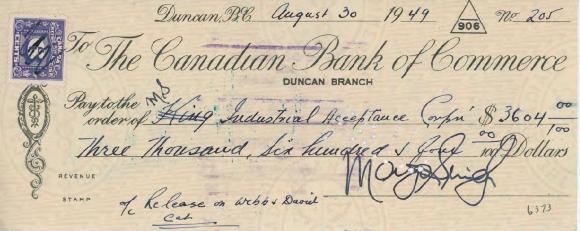 Duncan, B.C. August 30 1949 906 No 205
To The Canadian Bank of Commerce
DUNCAN BRANCH
M.S.
Pay to the order of King Industrial Acceptance Corpn' $3604 00/100
Three Thousand, Six hundred & four 00/100 Dollars
REVENUE
STAMP
o/c Release on Webb & David
Cat
6373